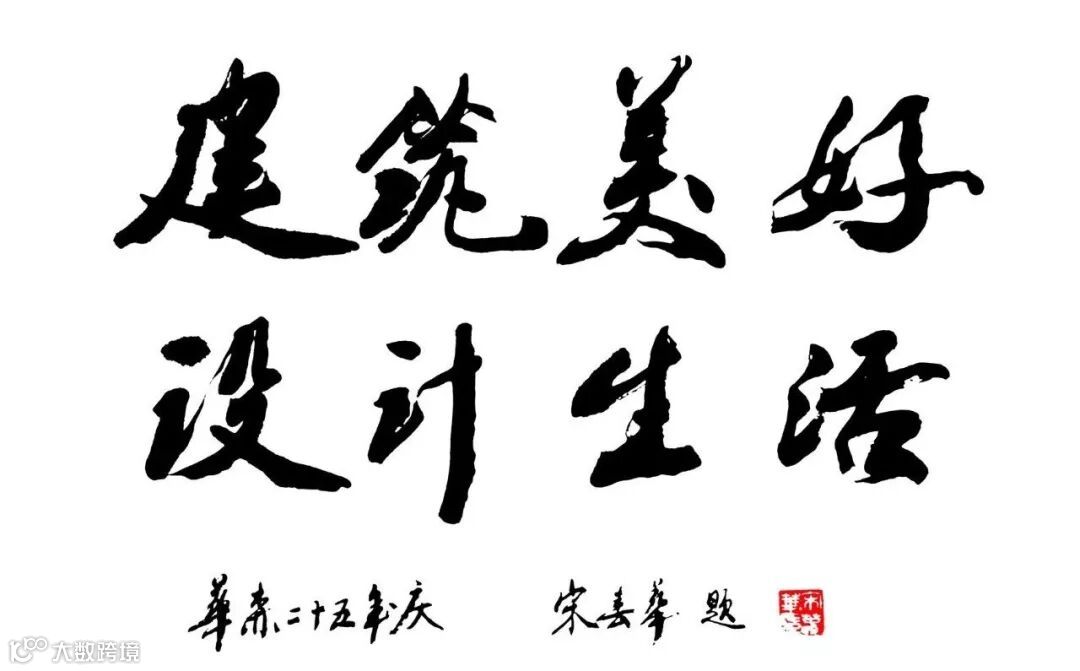 建筑美好
设计生活
華森二十五年庆 宋春華 题
大数跨境